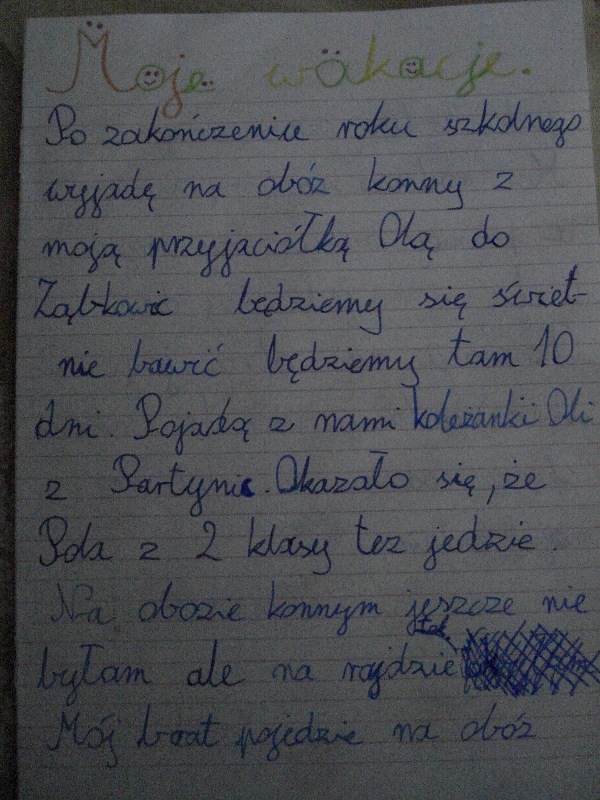 Moje wakacje.
Po zakończeniu roku szkolnego
wyjadę na obóz konny z
moją przyjaciółką Olą do
Ząbkowic będziemy się świet-
nie bawić będziemy tam 10
dni. Pojadą z nami koleżanki Oli
z Partynic. Okazało się, że
Pola z 2 klasy tez jedzie.
Na obozie konnym jeszcze nie
byłam ale na rajdzie tak.
Mój brat pojedzie na obóz